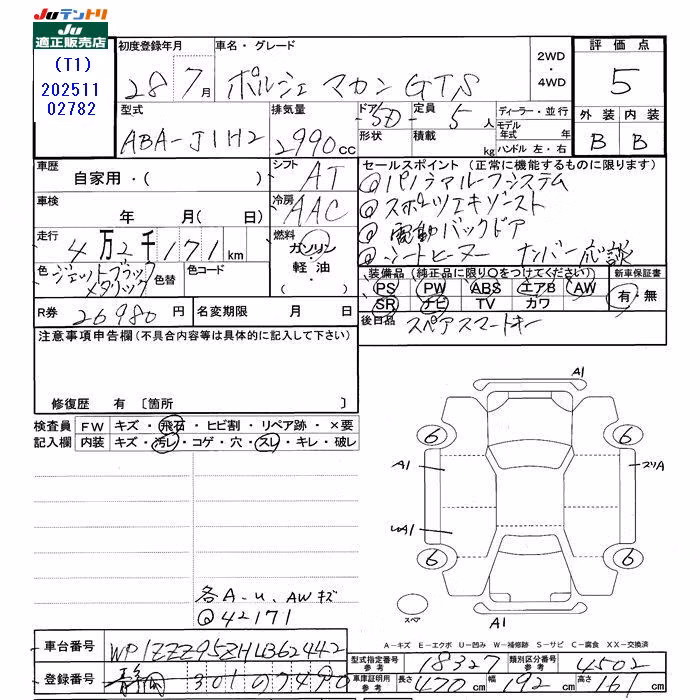 JUテントリ
JU
適正販売店
(T1)
202511
02782
初度登録年月
28 7月
車名・グレード
ポルシェ マカン GTS
2WD
・
4WD
評価点
5
外装 内装
B B
型式
ABA-J1H2
排気量
2990cc
ドア 5D
形状
定員 5人
積載 kg
ディーラー・並行
モデル年式 年
ハンドル 左・右
車歴
自家用・( )
シフト AT
車検
年 月( 日)
冷房 AAC
走行 4万2千171km
燃料 ガソリン・軽油・( )
色 ジェットブラックメタリック
色替
色コード
R券 26980円
名変期限 月 日
セールスポイント(正常に機能するものに限ります)
◎パノラマルーフシステム
◎スポーツエキゾースト
◎電動バックドア
◎シートヒーター ナンバー応談
装備品(純正品に限り○をつけてください)
PS PW ABS エアB AW
SR ナビ TV カワ
新車保証書
有・無
後日品 スペアスマートキー
注意事項申告欄(不具合内容等は具体的に記入して下さい)
修復歴 有 〔箇所 〕
検査員記入欄
FW キズ・飛石・ヒビ割・リペア跡・×要
内装 キズ・汚レ・コゲ・穴・スレ・キレ・破レ
A1
6 6
A1 スリA
UA1
6 6
スペア
A1
各A-U、AWキズ
◎42171
A-キズ E-エクボ U-凹み W-補修跡 S-サビ C-腐食 XX-交換済
車台番号 WP1ZZZ95ZHLB62442
型式指定番号 参考 18327
類別区分番号 参考 4502
登録番号 静岡 301 の 7490
車庫証明用 参考 長さ 470cm 幅 192cm 高さ 161cm